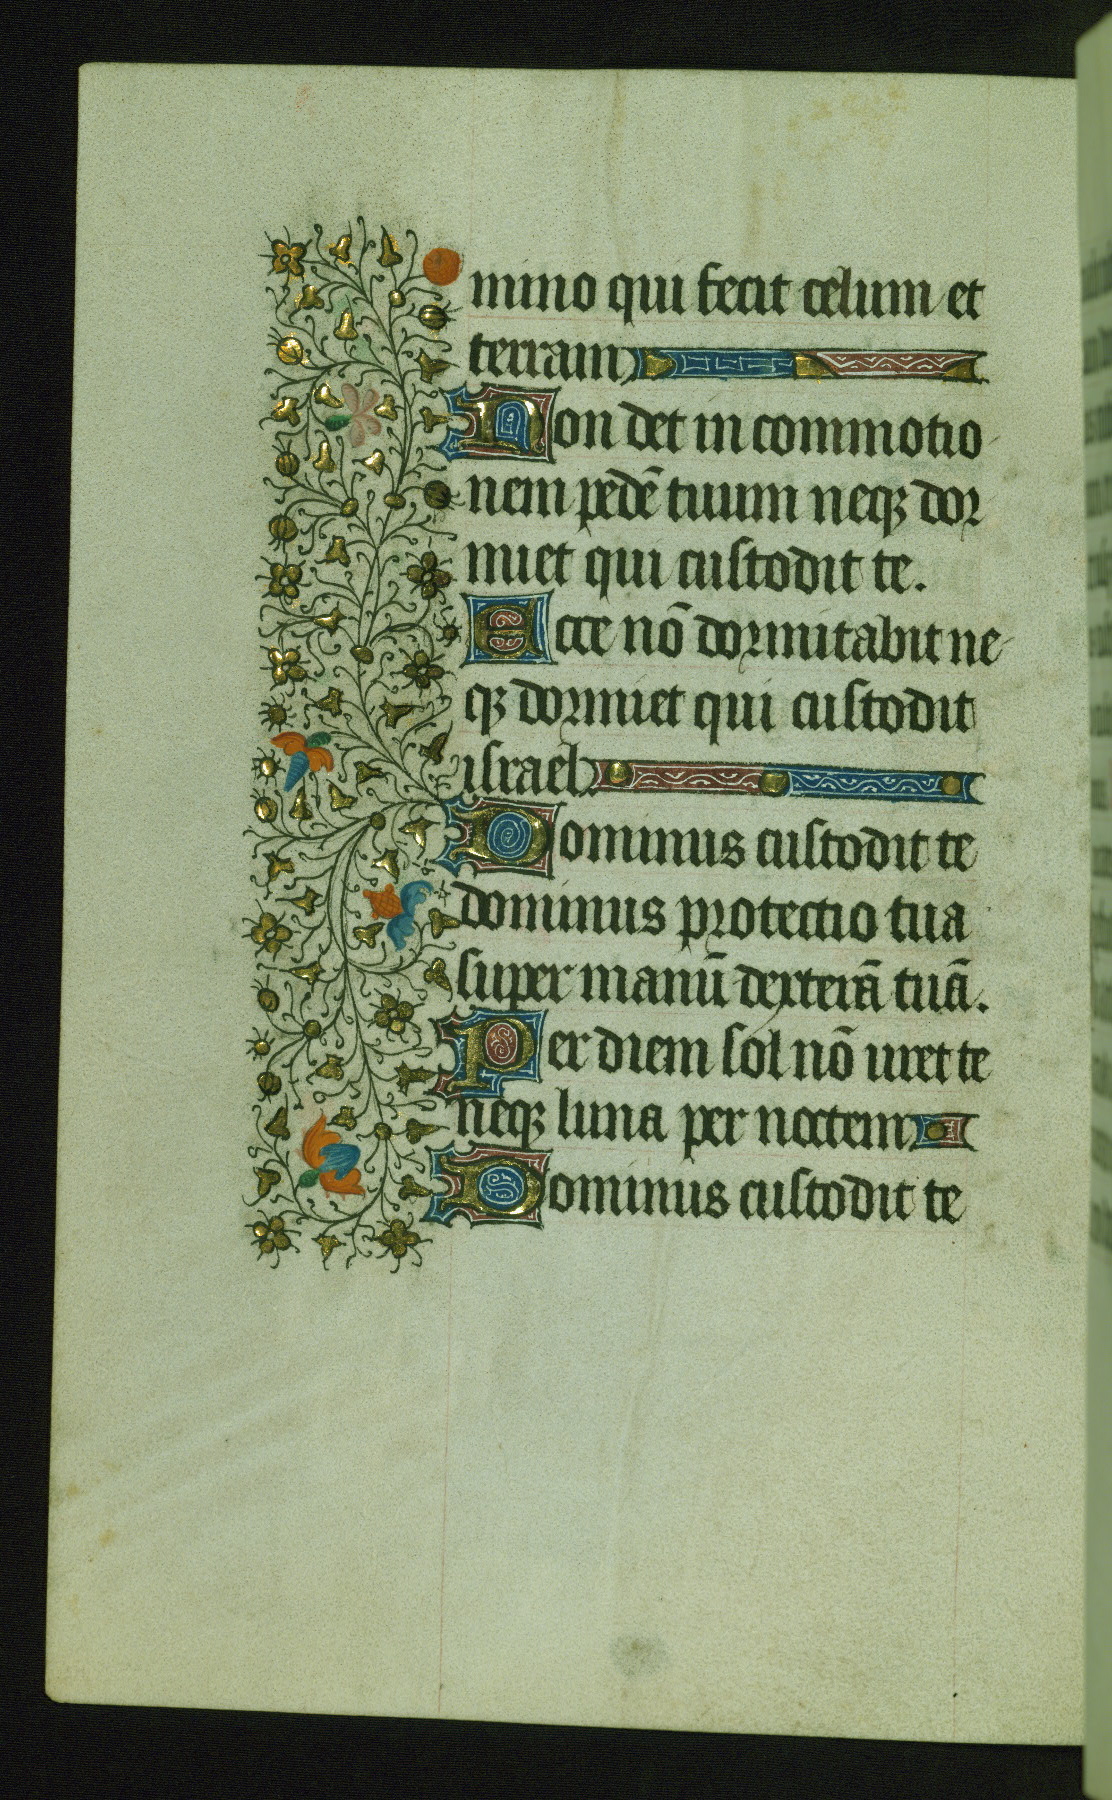 mino qui fecit celum et
terram
Non det in commotio
nem pedē tuum neqꝫ dor
miet qui custodit te.
Ecce nō dormitabit ne-
qꝫ dormiet qui custodit
israel
Dominus custodit te
dominus protectio tua
super manū dexterā tuā.
Per diem sol nō uret te
neqꝫ luna per noctem
Dominus custodit te